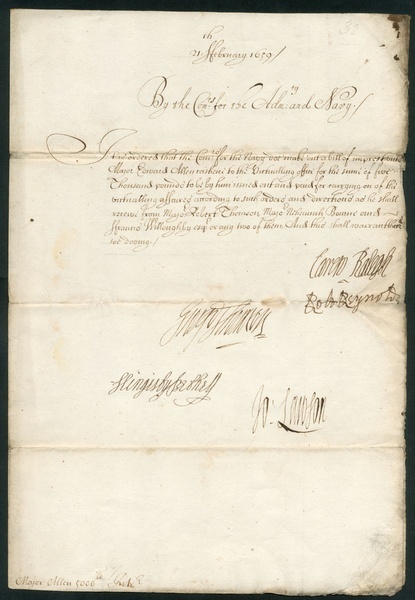 32
21th ffebruary 1659/
By the Comrs for the Admty and Navy./
It is ordered that the Comrs for the Navy doe make out a bill of imprest unto
Major Edward Allen Cashere to the Victualling office for the sume of five
Thousand pounds to be by him issued out and paid for carrying on of the
victualling affaires according to such orders and directions as he shall
receive from Major Robert Thomson Major Nehemiah Bourne and
ffrancis Willoughby esqr or any two of them And this shall warrant their
soe doeing./
Carew Ralegh
Rob Reynolds
George Thomson
Slingisby Bethell
Jo: Lawson
Major Allen 5000li